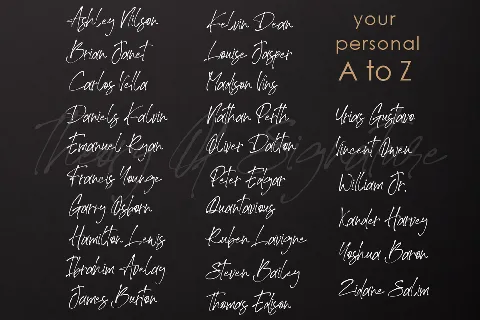 Ashley Nilson
Brian Janet
Carlos Vella
Daniels Kalvin
Emanuel Ryan
Francis Younge
Garry Osborn
Hamilton Lewis
Ibrahim Avelay
James Burton
Kelvin Dean
Louise Jasper
Madison Vins
Nathan Perth
Oliver Dalton
Peter Edgar
Quantavious
Ruben Lavigne
Steven Bailey
Thomas Edison
your
personal
A to Z
Urias Gustavo
Vincent Owen
William Jr.
Xander Harvey
Yoshua Baron
Zidane Salim
Signature